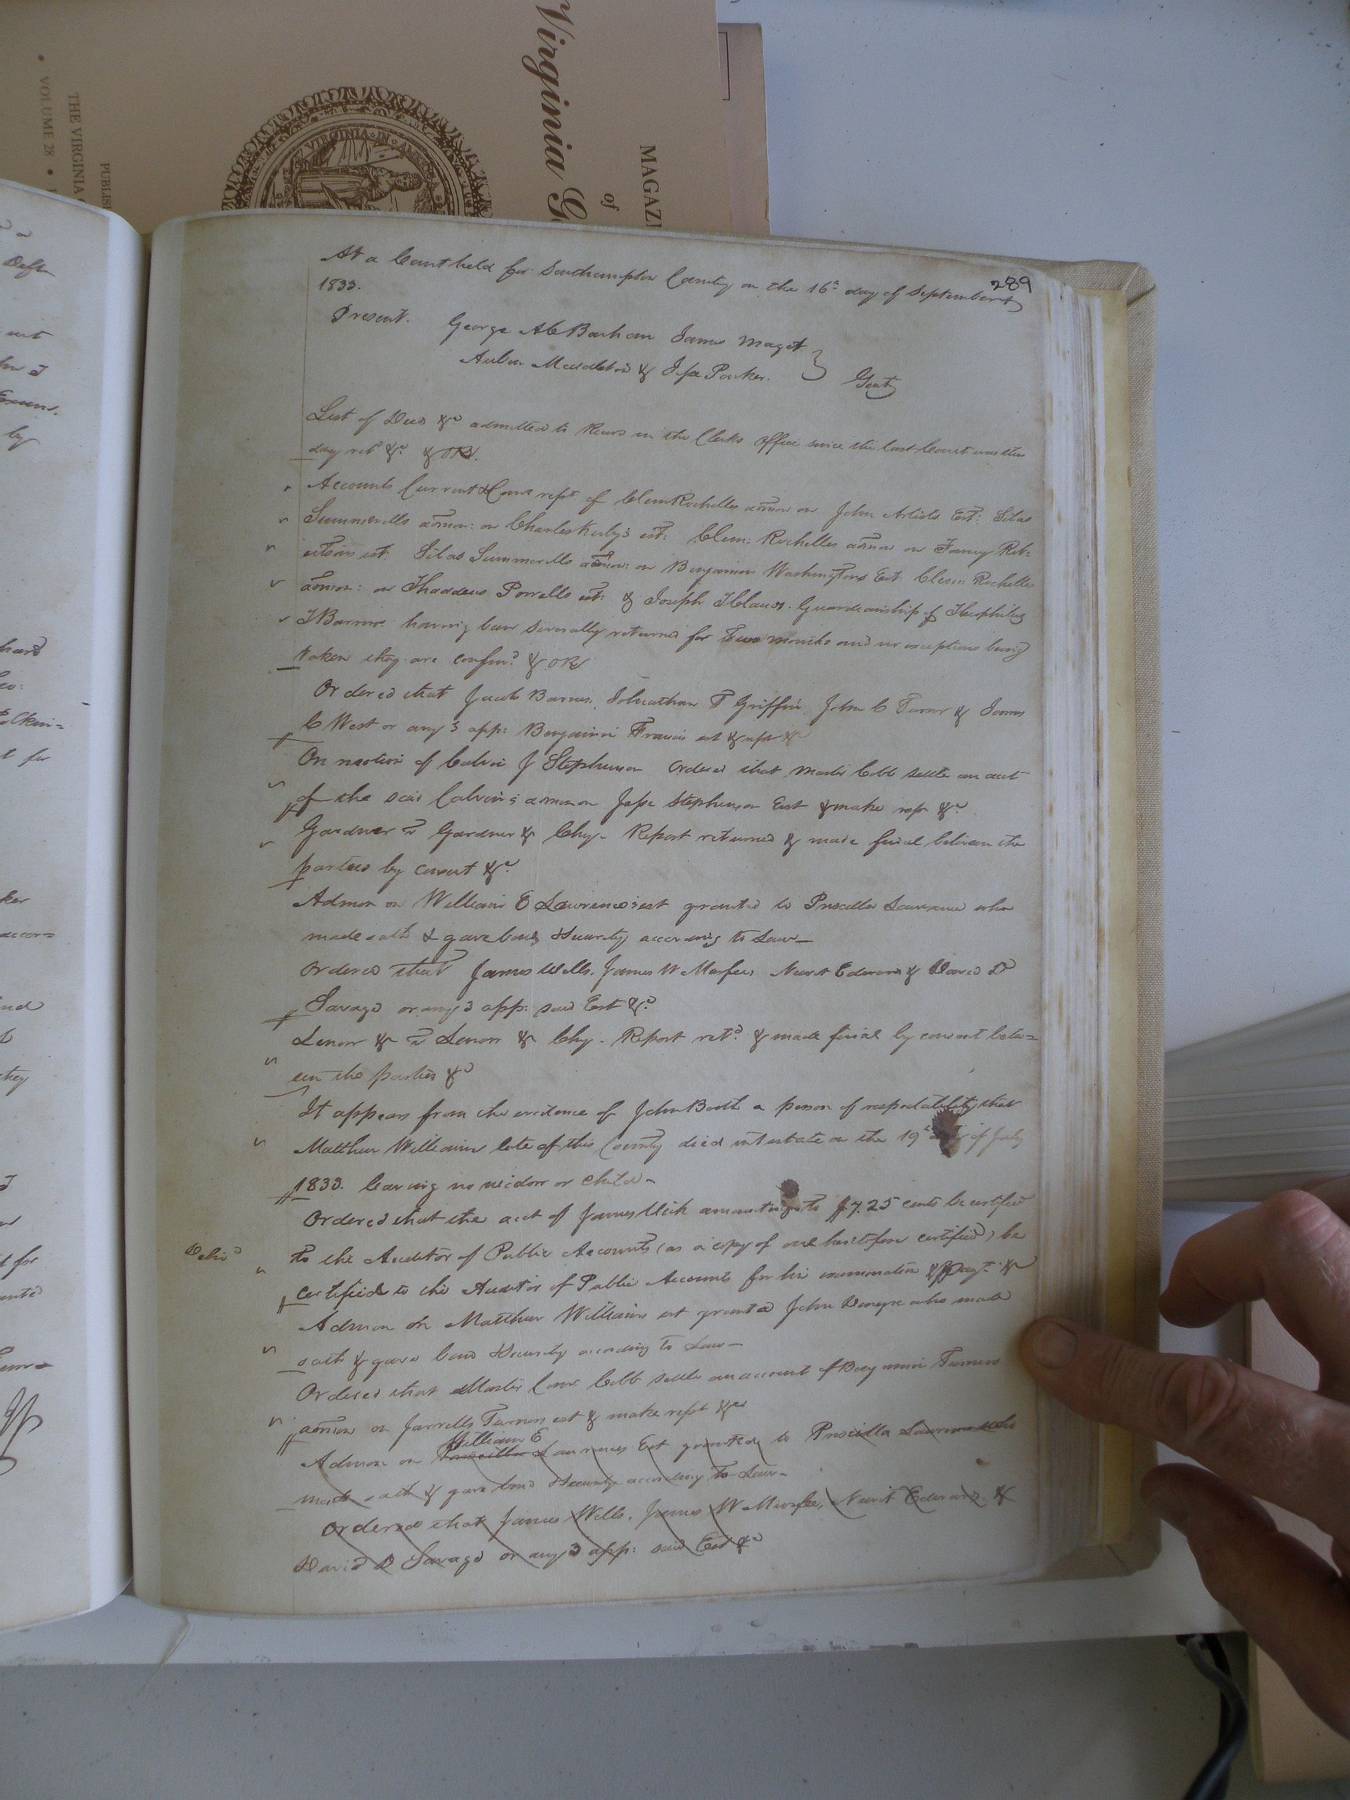 Virginia G
MAGAZI
of
PUBLIS
THE VIRGINIA
• VOLUME 28 •
VIRGINIA IN
289
At a Court held for Southampton County on the 16th day of September
1833.
Present. George A C Barham James Maget
& Parker. Gent
List of Deeds &c admitted to Record in the Clerks office since the last Court was this
day retd &c & OR.
Accounts Current & Comrs rept of Clem: Rochelles admon on John Artists Est: Silas
Summerells admon: on Charles Kirby's est: Clem: Rochelles admon on Fanny Rob:
est: Silas Summerells admon: on Benjamin Washingtons Est: Clem: Rochelles
admon: on Thaddeus Powells est: & Joseph T Claud Guardianship of Theophilus
T Barnes having been severally returned for Two months and no exceptions being
taken they are confirmd & OR
Ordered that Jacob Barnes, Johnathan T Griffin John C Turner & James
C West or any 3 app: Benjamin Francis est & rept &c
On motion of Calvin J Stephenson Ordered that Master Cobb settle an acct
of the said Calvin's admon on Jesse Stephenson Est & make rept &c
Gardner vs Gardner &c Chy - Report returned & made final between the
parties by consent &c
Admon on William E Lawrences est granted to Priscilla Lawrence who
made oath & gave bond & security according to Law—
Ordered that James Wells, James W Murfee, Newit Edwards & David D
Savage or any 3 app: said Est &c
Lenow &c vs Lenow &c Chy - Report retd & made final by consent betw=
een the parties &c
It appears from the evidence of John Booth a person of respectability that
Matthew Williams late of this County died intestate on the 19th day of July
1833. leaving no widow or child—
Ordered that the acct of James Usik amounting to $7.25 cents be certified
to the Auditor of Public Accounts (as a copy of one heretofore certified) be
certified to the Auditor of Public Accounts for his examination & payt. &c
Admon on Matthew Williams est granted John who made
oath & gave bond & security according to Law—
Ordered that Master Comr Cobb settle an account of Benjamin Turners
admon on Jarrells Turners est & make rept &c
William E
Admon on Priscilla Lawrences Est granted to Priscilla Lawrence who
made oath & gave bond & security according to Law—
Ordered that James Wells, James W Murfee, Newit Edwards &
David D Savage or any 3 app: said Est &c